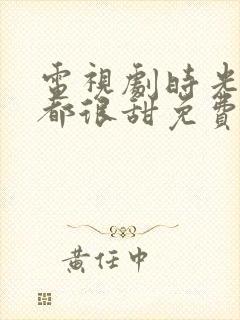 電視劇時光
都很甜免費
黃任中